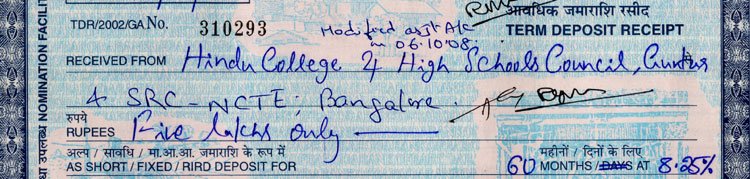 आवधिक जमाराशि रसीद
TDR/2002/GA No. 310293
Modified asst A/c
on 06.10.08
TERM DEPOSIT RECEIPT
RECEIVED FROM Hindu College & High Schools Council, Guntur
& SRC-NCTE, Bangalore.
रुपये
RUPEES Five lakhs only
अल्प / सावधि / मा.आ.आ. जमाराशि के रूप में महीनों / दिनों के लिए
AS SHORT / FIXED / RIRD DEPOSIT FOR 60 MONTHS / DAYS AT 8.25%
उपलब्ध NOMINATION FACILIT